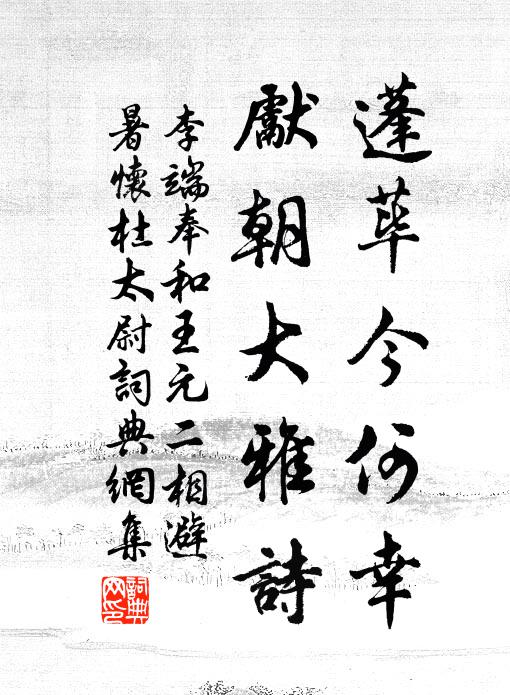 蓬蓽今何幸
獻朝大雅詩
李端奉和王元二相避
暑懷杜太尉詞典網集
詞典網印